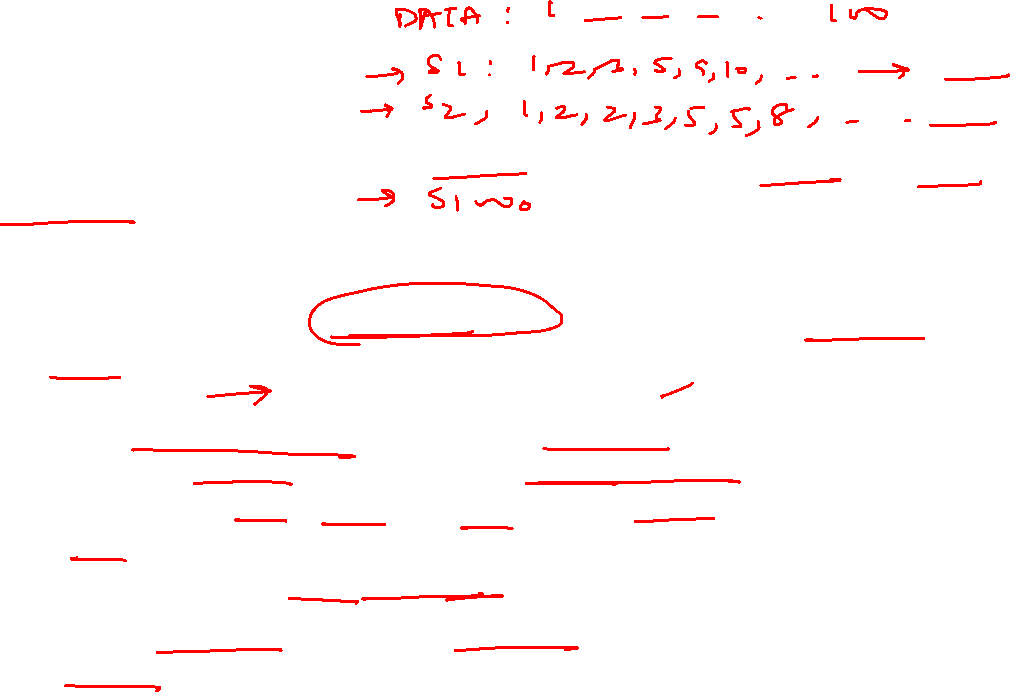 DATA: 1 _ _ _ . 100
→ S1: 1,2,2,5,9,10, .. →
→ S2, 1,2,2,3,5,5,8, ..
→ S1000